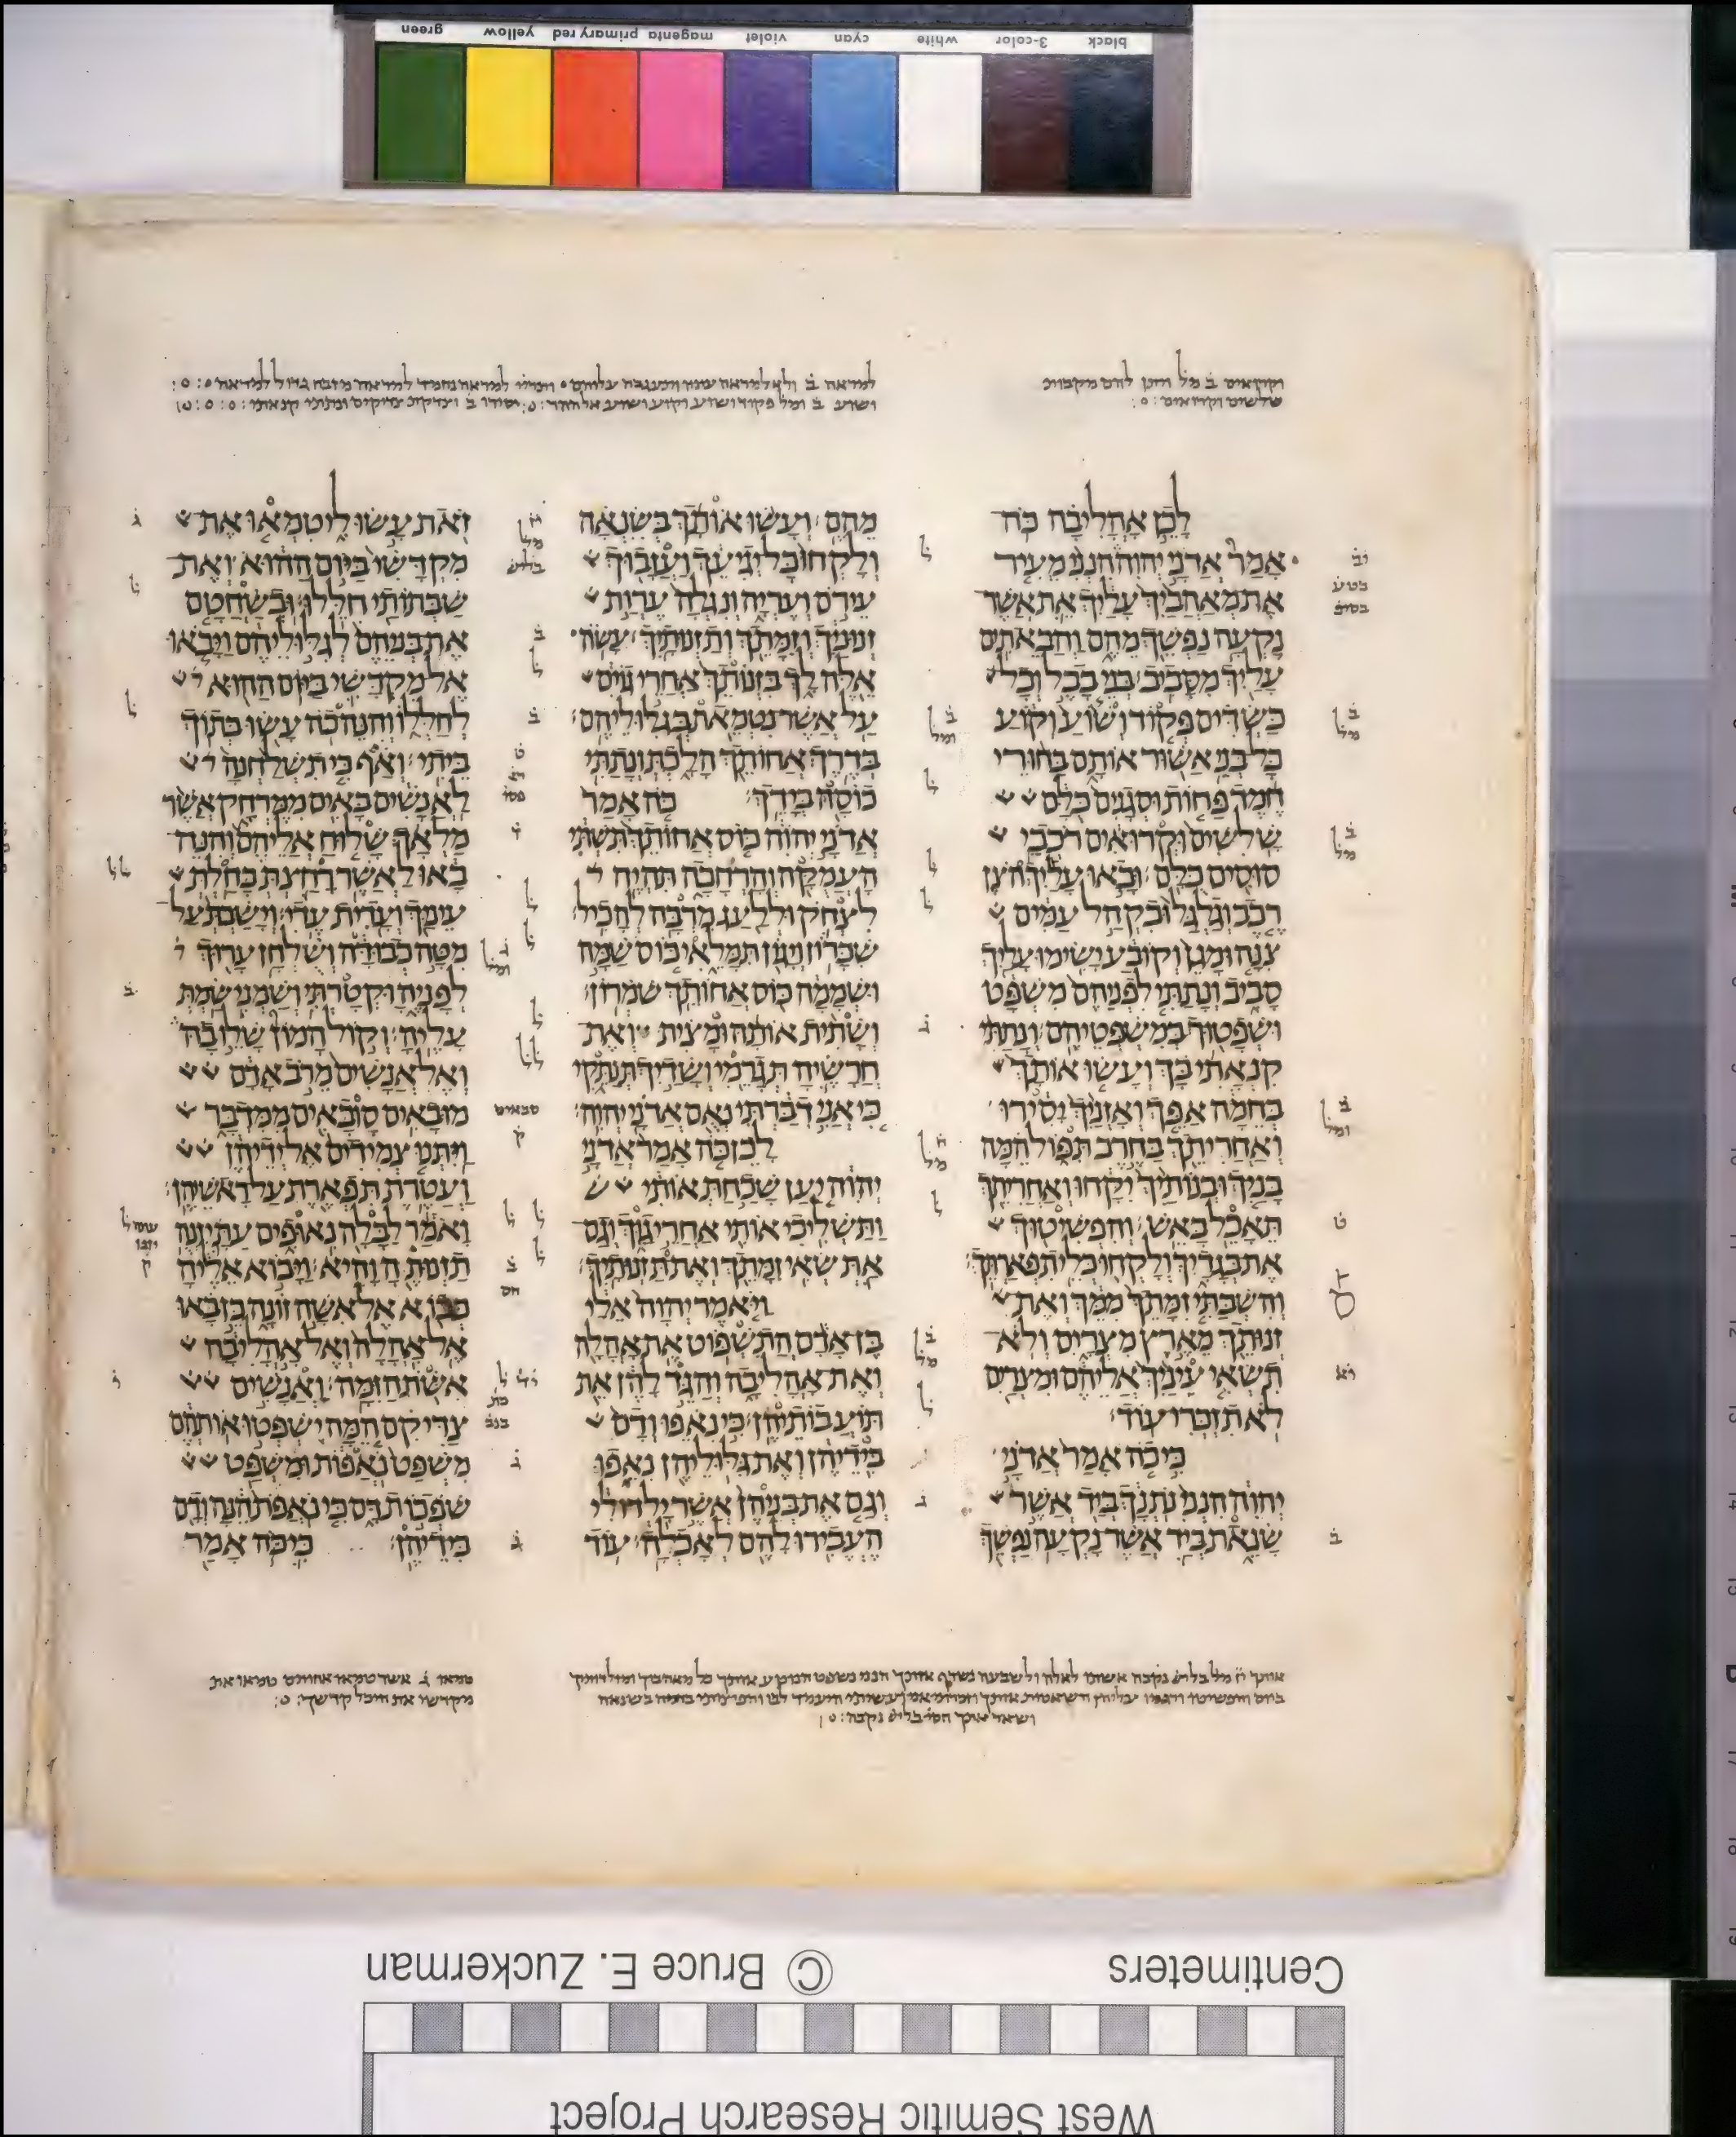 black 3-color white cyan violet magenta primary red yellow green
וקרואים ב מל
שלשים וקרואים
לכן אהליבה כה
אמר אדני יהוה הנני מעיר
את מאהביך עליך את אשר
נקעה נפשך מהם והבאתים
עליך מסביב בני בבל וכל
כשדים פקוד ושוע וקוע
כל בני אשור אותם בחורי
חמד פחות וסגנים כלם
שלשים וקרואים רכבי
סוסים כלם ובאו עליך הצן
רכב וגלגל ובקהל עמים
צנה ומגן וקובע ישימו עליך
סביב ונתתי לפניהם משפט
ושפטוך במשפטיהם ונתתי
קנאתי בך ועשו אותך
בחמה אפך ואזניך יסירו
ואחריתך בחרב תפול המה
בניך ובנותיך יקחו ואחריתך
תאכל באש והפשיטוך
את בגדיך ולקחו כלי תפארתך
והשבתי זמתך ממך ואת
זנותך מארץ מצרים ולא
תשאי עיניך אליהם ומצרים
לא תזכרי עוד
כי כה אמר אדני
יהוה הנני נתנך ביד אשר
שנאת ביד אשר נקעה נפשך
מהם ועשו אותך בשנאה
ולקחו כל יגיעך ועזבוך
עירם ועריה ונגלה ערות
זנוניך וזמתך ותזנותיך עשה
אלה לך בזנותך אחרי גוים
על אשר נטמאת בגלוליהם
בדרך אחותך הלכת ונתתי
כוסה בידך כה אמר
אדני יהוה כוס אחותך תשתי
העמקה והרחבה תהיה
לצחק וללעג מרבה להכיל
שכרון ויגון תמלאי כוס שמה
ושממה כוס אחותך שמרון
ושתית אותה ומצית ואת
חרשיה תגרמי ושדיך תנתקי
כי אני דברתי נאם אדני יהוה
לכן כה אמר אדני
יהוה יען שכחת אותי
ותשליכי אותי אחרי גוך וגם
את שאי זמתך ואת תזנותיך
ויאמר יהוה אלי
בן אדם התשפוט את אהלה
ואת אהליבה והגד להן את
תועבותיהן כי נאפו ודם
בידיהן ואת גלוליהן נאפו
וגם את בניהן אשר ילדו לי
העבירו להם לאכלה עוד
זאת עשו לי טמאו את
מקדשי ביום ההוא ואת
שבתותי חללו ובשחטם
את בניהם לגלוליהם ויבאו
אל מקדשי ביום ההוא
לחללו והנה כה עשו בתוך
ביתי ואף כי תשלחנה
לאנשים באים ממרחק אשר
מלאך שלוח אליהם והנה
באו לאשר רחצת כחלת
עיניך ועדית עדי וישבת על
מטה כבודה ושלחן ערוך
לפניה וקטרתי ושמני שמת
עליה וקול המון שלו בה
ואל אנשים מרב אדם
מובאים סובאים ממדבר
ויתנו צמידים אל ידיהן
ועטרת תפארת על ראשיהן
ואמר לבלה נאופים עת יזנה
תזנותה והיא ויבוא אליה
כבוא אל אשה זונה כן באו
אל אהלה ואל אהליבה
אשת הזמה ואנשים
צדיקם המה ישפטו אותהם
משפט נאפות ומשפט
שפכות דם כי נאפת הנה ודם
בידיהן כי כה אמר
טמאו ג אשר טמאו אחותם טמאו את
מקדשי את היכל קדשך
Centimeters © Bruce E. Zuckerman
West Semitic Research Project